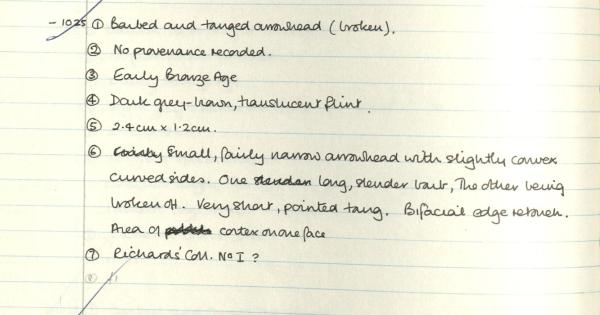 - 1025 ① Barbed and tanged arrowhead (broken).
② No provenance recorded.
③ Early Bronze Age
④ Dark grey-brown, translucent flint.
⑤ 2.4cm x 1.2cm.
⑥ Small, fairly narrow arrowhead with slightly convex
curved sides. One long, slender barb, the other being
broken off. Very short, pointed tang. Bifacial edge retouch.
Area of cortex on one face
⑦ Richards' Coll. No I ?